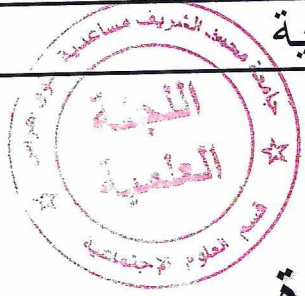 جامعة محمد الشريف مساعدية
اللجنة
العلمية
قسم العلوم الاجتماعية
ية
ة